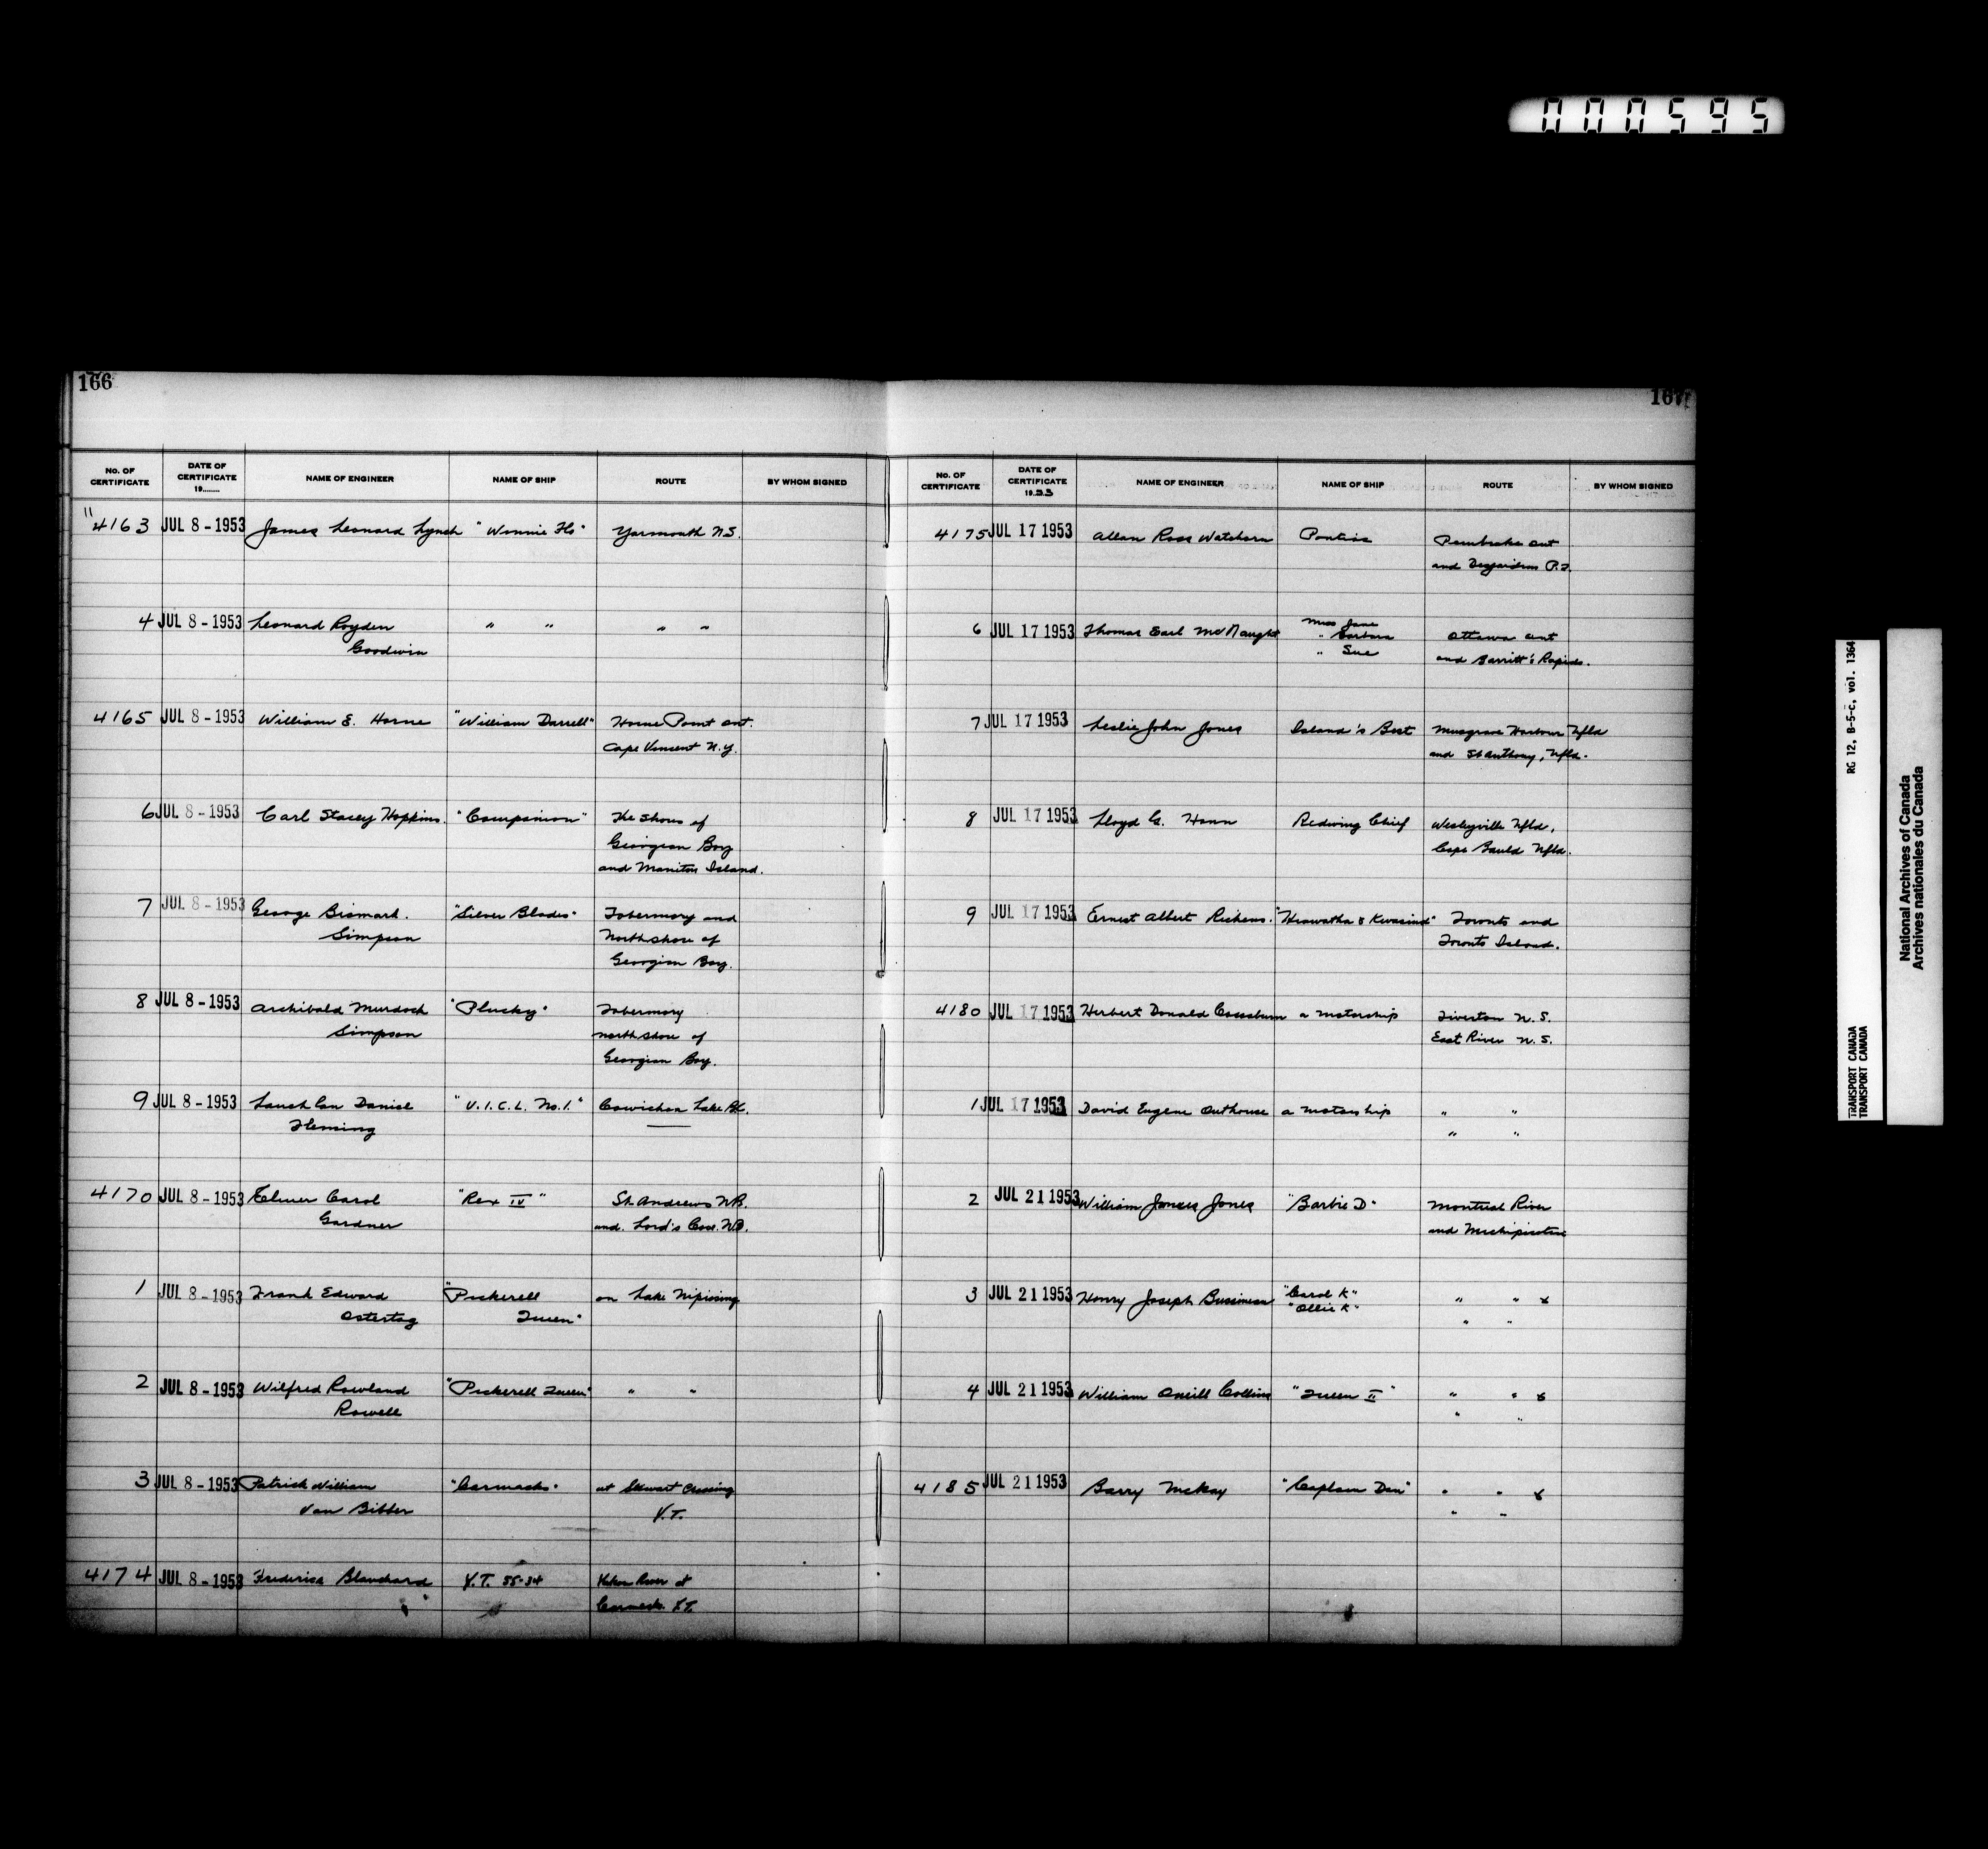 000595
166
No. OF CERTIFICATE DATE OF CERTIFICATE 19........ NAME OF ENGINEER NAME OF SHIP ROUTE BY WHOM SIGNED
"4163 JUL 8 - 1953 James Leonard Lynch "Winnie Flo" Yarmouth N.S.
4 JUL 8 - 1953 Leonard Royden " " " "
Goodwin
4165 JUL 8 - 1953 William E. Horne "William Darrell" Horne Point Ont.
Cape Vincent N.Y.
6 JUL 8 - 1953 Carl Stacey Hopkins. "Companion" The Shores of
Georgian Bay
and Manitou Island.
7 JUL 8 - 1953 George Bismark. "Silver Blades" Tobermory and
Simpson North shore of
Georgian Bay.
8 JUL 8 - 1953 Archibald Murdoch "Plucky" Tobermory
Simpson north shore of
Georgian Bay.
9 JUL 8 - 1953 Lauchlan Daniel "V.I.C.L. No.1." Cowichan Lake B.C.
Fleming
4170 JUL 8 - 1953 Elmer Carol "Rex IV" St. Andrews N.B.
Gardner and. Lord's Cove. N.B.
1 JUL 8 - 1953 Frank Edward "Pickerell on Lake Nipissing
Ostertag Queen"
2 JUL 8 - 1953 Wilfred Rowland "Pickerell Queen" " "
Rowell
3 JUL 8 - 1953 Patrick William "Carmacks" at Stewart Crossing
Van Bibber Y.T.
4174 JUL 8 - 1953 Frederick Blanchard Y.T. 55-34 Yukon River at
Carmacks Y.T.
167
No. OF CERTIFICATE DATE OF CERTIFICATE 1953 NAME OF ENGINEER NAME OF SHIP ROUTE BY WHOM SIGNED
4175 JUL 17 1953 Allan Ross Watchorn Pontiac Pembroke Ont
and Desjardins P.Q.
6 JUL 17 1953 Thomas Earl McNaught Miss Jane
" Barbara Ottawa Ont
" Sue and Barritt's Rapids.
7 JUL 17 1953 Leslie John Jones Island's Best Musgrave Harbour Nfld
and St Anthony, Nfld.
8 JUL 17 1953 Lloyd G. Hann Redwing Chief Wesleyville Nfld,
Cape Bauld Nfld.
9 JUL 17 1953 Ernest Albert "Hiawatha & Kwasind" Toronto and
Toronto Island.
4180 JUL 17 1953 Herbert Donald a motorship Tiverton N.S.
East River N.S.
1 JUL 17 1953 David Eugene Outhouse a motorship " "
" "
2 JUL 21 1953 William James Jones "Barbie D" Montreal River
and Michipicoten
3 JUL 21 1953 Henry Joseph "Carol K" " " &
"Ollie K" " "
4 JUL 21 1953 William Oneill Collins "Queen II" " " &
" "
4185 JUL 21 1953 Barry McKay "Captain Dan" " " &
" "
RG 12, B-5-c, vol. 1364
TRANSPORT CANADA
TRANSPORT CANADA
National Archives of Canada
Archives nationales du Canada